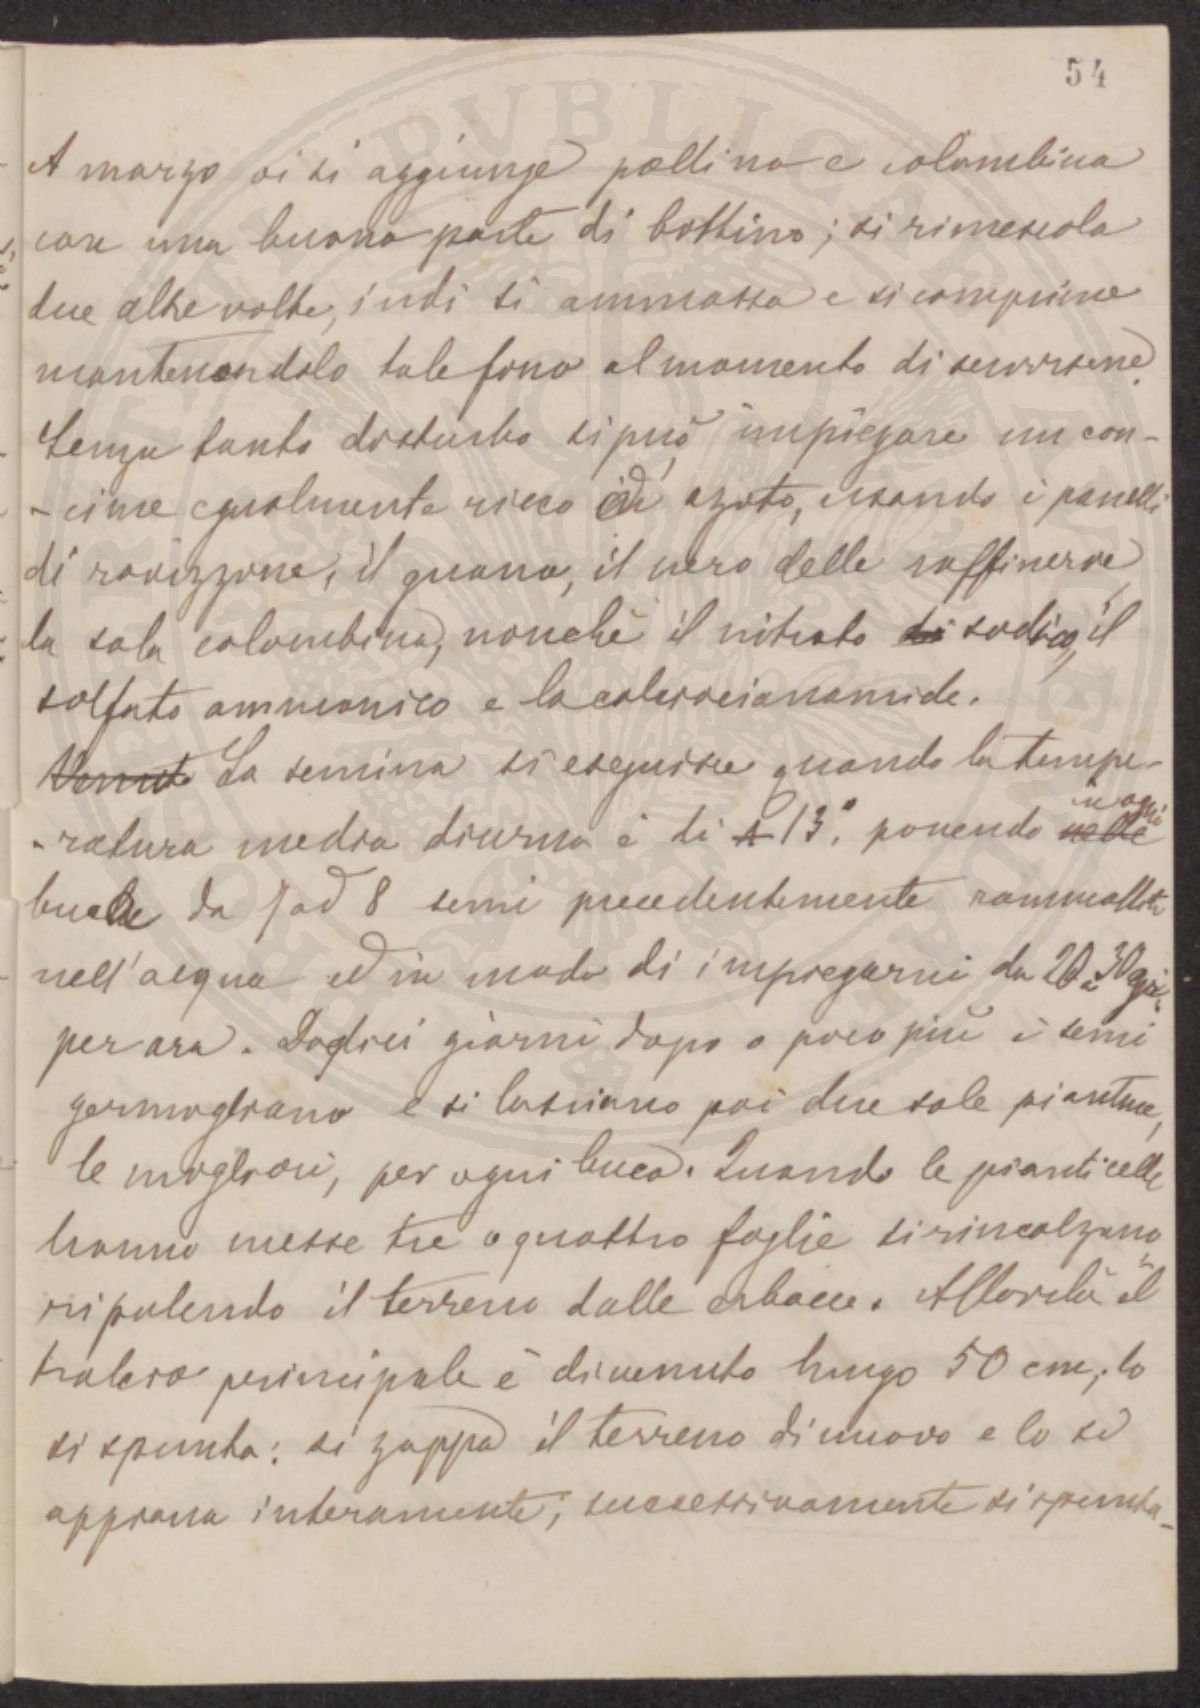 54
A marzo vi si aggiunge pollina e colombina
con una buona parte di bottino; si rimescola
due altre volte, indi si ammassa e si comprime
mantenendolo tale fino al momento di servirsene.
Senza tanto disturbo si può impiegare un con-
-cime egualmente ricco di azoto, usando i panelli
di ravizzone, il guano, il nero delle raffinerie,
la sola colombina, nonchè il nitrato di sodico, il
solfato ammonico e la calciocianamide.
Venuto La semina si eseguisce quando la tempe-
-ratura media diurna è di 13°. ponendo nelle in ogni
buche da 7 ad 8 semi precedentemente rammolliti
nell'acqua ed in modo di impiegarni da 20 a 30 gr.
per ara. Dodici giorni dopo o poco più i semi
germogliano e si lasciano poi due sole piantine,
le migliori, per ogni buca. Quando le pianticelle
hanno messe tre o quattro foglie si rincalzano
ripulendo il terreno dalle erbacce. Allorchè il
tralcio principale è divenuto lungo 50 cm, lo
si spunta: si zappa il terreno di nuovo e lo si
appiana interamente; successivamente si spunta-
PUBLIC